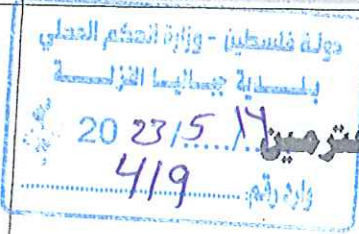 دولة فلسطين - وزارة الحكم المحلي
بلدية جباليا النزلة
20 23/5/17
وارد رقم: 419